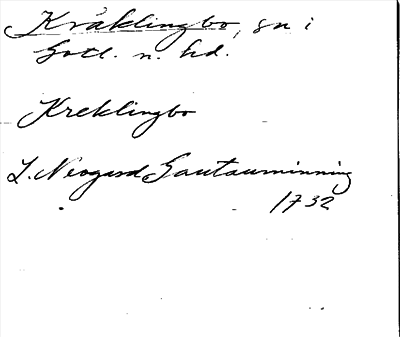 Kräklingbo, sn i
Gotl. n. hd.
Kreklingbo
L. Neogard Gautauminning
1732